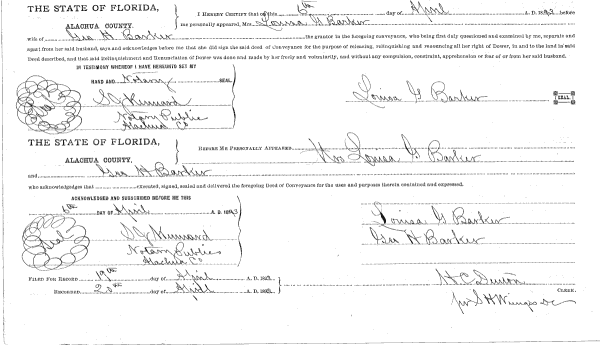 THE STATE OF FLORIDA,
ALACHUA COUNTY.
I HEREBY CERTIFY that on this 6th day of April A. D. 1893 before
me personally appeared, Mrs. Louisa G Barker
wife of Geo H Barker the grantor in the foregoing conveyance, who being first duly questioned and examined by me, separate and
apart from her said husband, says and acknowledges before me that she did sign the said deed of Conveyance for the purpose of releasing, relinquishing and renouncing all her right of Dower, in and to the land in said
Deed described, and that said Relinquishment and Renunciation of Dower was done and made by her freely and voluntarily, and without any compulsion, constraint, apprehension or fear of or from her said husband.
IN TESTIMONY WHEREOF I HAVE HEREUNTO SET MY
HAND AND Notary
Seal
S J Kinnard
Notary Public
Alachua Co
Louisa G Barker
SEAL
THE STATE OF FLORIDA,
ALACHUA COUNTY.
BEFORE ME PERSONALLY APPEARED Mrs Louisa G Barker
and Geo H Barker
who acknowledges that executed, signed, sealed and delivered the foregoing Deed of Conveyance for the uses and purposes therein contained and expressed.
ACKNOWLEDGED AND SUBSCRIBED BEFORE ME THIS
6th DAY OF April A. D. 1893
Seal
S J Kinnard
Notary Public
Alachua Co
Louisa G Barker
Geo H Barker
FILED FOR RECORD 19th day of April A. D. 1893
RECORDED 20th day of April A. D. 1893
H C Denton
CLERK.
per S H Wienges DC